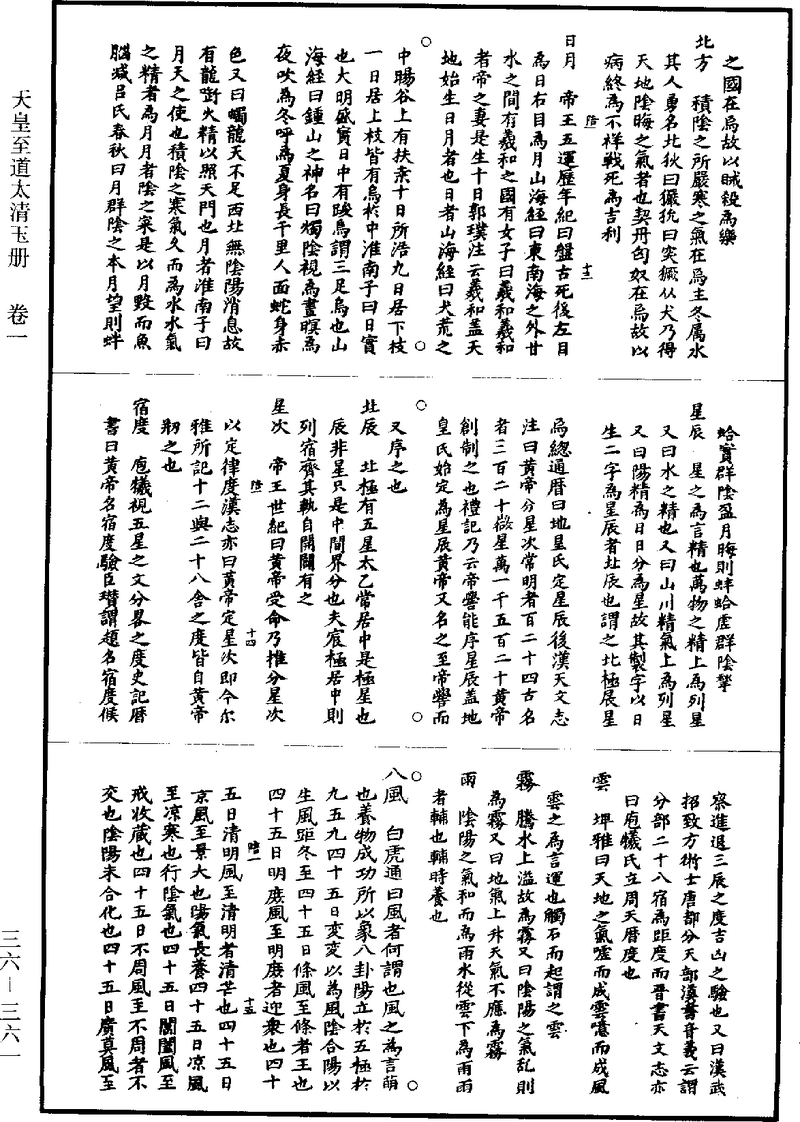 天皇至道太清玉册　卷一
三六—三六一
之國在焉故以賊殺爲樂
北方　積陰之所嚴寒之氣在焉主冬屬水
其人勇名北狄曰玁狁曰突厥从犬乃得
天地陰晦之氣者也契丹匈奴在焉故以
病終爲不祥戰死爲吉利
陰
十三
日月　帝王五運歷年紀曰盤古死後左目
爲日右目爲月山海經曰東南海之外甘
水之間有羲和之國有女子曰羲和羲和
者帝之妻是生十日郭璞注云羲和盖天
地始生日月者也日者山海經曰大荒之
中暘谷上有扶桑十日所浴九日居下枝
一日居上枝皆有烏於中淮南子曰日實
也大明盛實日中有踆烏謂三足烏也山
海經曰鍾山之神名曰燭陰視爲晝暝爲
夜吹爲冬呼爲夏身長千里人面蛇身赤
色又曰燭龍天不足西北無陰陽消息故
有龍銜火精以照天門也月者淮南子曰
月天之使也積陰之寒氣久而爲水水氣
之精者爲月月者陰之宗是以月毀而魚
腦減吕氏春秋曰月群陰之本月望則蚌
蛤實群陰盈月晦則蚌蛤虛群陰揫
星辰　星之爲言精也萬物之精上爲列星
又曰水之精也又曰山川精氣上爲列星
又曰陽精爲日日分爲星故其製字以日
生二字爲星辰者北辰也謂之北極辰星
爲總通曆曰地皇氏定星辰後漢天文志
注曰黃帝分星次常明者百二十四古名
者三百二十微星萬一千五百二十黃帝
創制之也禮記乃云帝嚳能序星辰盖地
皇氏始定爲星辰黃帝又名之至帝嚳而
又序之也
北辰　北極有五星太乙常居中是極星也
辰非星只是中間界分也夫宸極居中則
列宿齊其軌自開闢有之
星次　帝王世紀曰黃帝受命乃推分星次
陰
十四
以定律度漢志亦曰黃帝定星次即今尔
雅所記十二與二十八舍之度皆自黃帝
剙之也
宿度　庖犧視五星之文分畧之度史記曆
書曰黃帝名宿度驗臣瓚謂題名宿度候
察進退三辰之度吉凶之驗也又曰漢武
招致方術士唐都分天部漢書音義云謂
分部二十八宿爲距度而晉書天文志亦
曰庖犧氏立周天曆度也
雲　埤雅曰天地之氣噓而成雲噫而成風
雲之爲言運也觸石而起謂之雲
霧　騰水上溢故爲霧又曰陰陽之氣亂則
爲霧又曰地氣上升天氣不應爲霧
雨　陰陽之氣和而爲雨水從雲下爲雨雨
者輔也輔時養也
八風　白虎通曰風者何謂也風之爲言萌
也養物成功所以象八卦陽立於五極於
九五九四十五日變變以爲風陰合陽以
生風距冬至四十五日條風至條者王也
四十五日明庶風至明庶者迎衆也四十
陰一
十五
五日清明風至清明者清芒也四十五日
京風至景大也陽氣長養四十五日凉風
至凉寒也行陰氣也四十五日閶闔風至
戒收藏也四十五日不周風至不周者不
交也陰陽未合化也四十五日廣莫風至